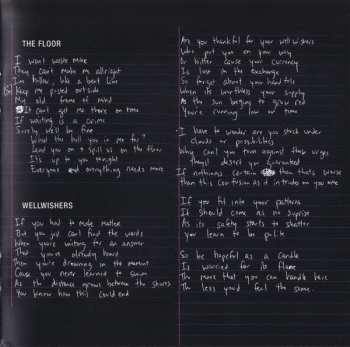 THE FLOOR
I won't wait more
They can't make me allright
I'm hollow, like a beat line
Keep me posted outside
My old frame of mind
It can't get me there on time
If waiting is a crime
Surely we'll be fine
What did pull you in me for?
Lead you on & spill us on the floor
It's up to you tonight
Everyone and everything needs more
WELLWISHERS
If you had to make matter
But you just can't find the words
When you're waiting for an answer
That you've already heard
Then you're drowning in the moment
Cause you never learned to swim
As the distance grows between the shores
You know how this could end
Are you thankful for your wellwishers
Who put you on your way
Or bitter cause your currency
Is lost in the exchange
So forget about your hard times
When it's worthless your supply
As the sun begins to glow red
You're running low on time
I have to wonder are you stuck under
clouds or possibilities
Why can't you turn against these urges
things doesn't you guaranteed
If nothings certain than that's worse
than this confusion as it intrudes on you now
If you fit into your patterns
It should come as no surprise
As its safety starts to shatter
you learn to be polite
So be hopeful as a candle
Is worried for its flame
The more that you can handle here
The less you'd feel the same.